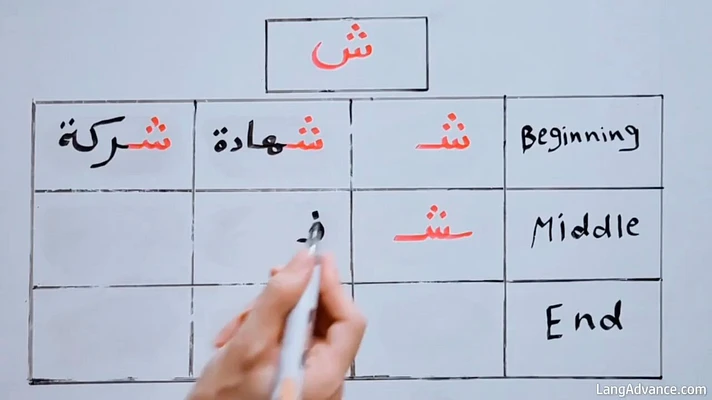 ش
Beginning شـ شهادة شركة
Middle ـشـ
End
LangAdvance.com